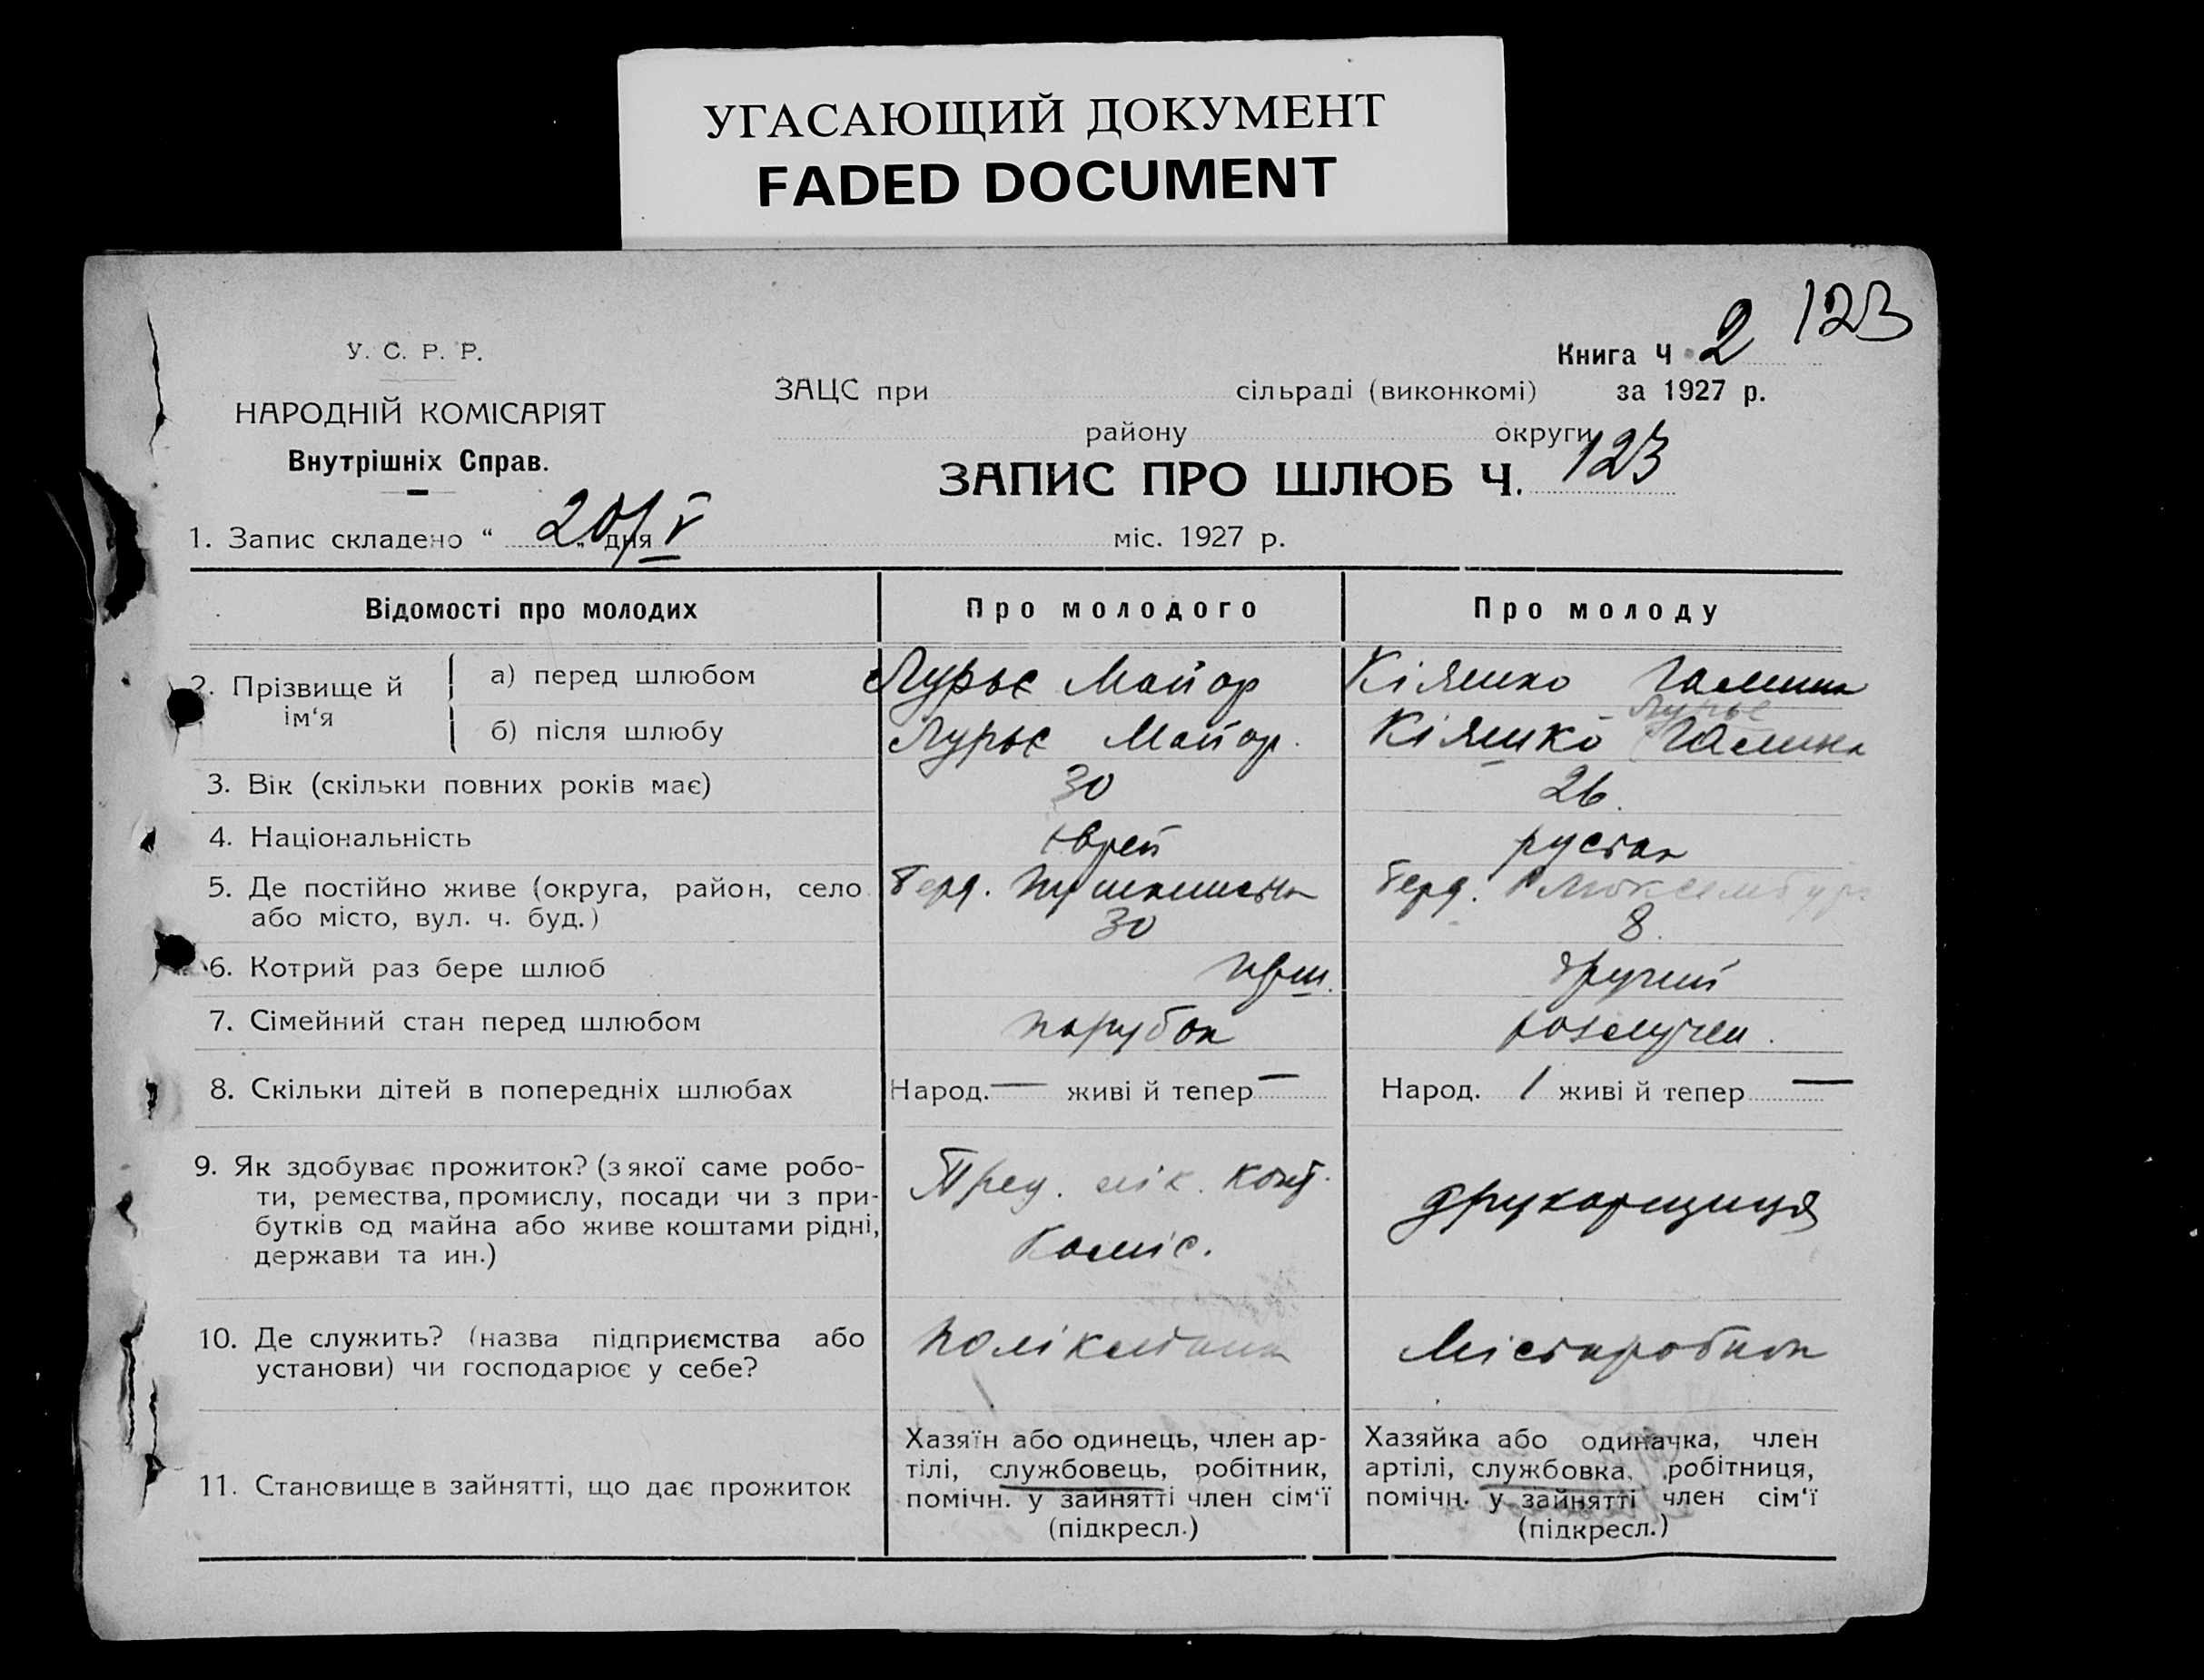 УГАСАЮЩИЙ ДОКУМЕНТ
FADED DOCUMENT
123
У. С. Р. Р.
НАРОДНІЙ КОМІСАРІЯТ
Внутрішніх Справ.
Книга Ч 2
ЗАЦС при сільраді (виконкомі) за 1927 р.
району округи
ЗАПИС ПРО ШЛЮБ Ч. 123
1. Запис складено “ 20/V „ дня міс. 1927 р.
Відомості про молодих Про молодого Про молоду
2. Прізвище й ім‘я
а) перед шлюбом Лурьє Майор Кіяшко Галина
Лурьє
б) після шлюбу Лурьє Майор. Кіяшко Галина
3. Вік (скільки повних років має) 30 26.
4. Національність єврей руська
5. Де постійно живе (округа, район, село Берд. Пушкинська Берд. Р Люксембург
або місто, вул. ч. буд.) 30 8.
6. Котрий раз бере шлюб перш. другий
7. Сімейний стан перед шлюбом парубок розлучен.
8. Скільки дітей в попередніх шлюбах Народ. — живі й тепер — Народ. 1 живі й тепер —
9. Як здобуває прожиток? (з якої саме робо-
ти, ремества, промислу, посади чи з при-
бутків од майна або живе коштами рідні,
держави та ин.)
лік. конт.
Коміс.
друкарщиця
10. Де служить? (назва підприємства або
установи) чи господарює у себе?
11. Становище в зайнятті, що дає прожиток
Хазяїн або одинець, член ар-
тілі, службовець, робітник,
помічн. у зайнятті член сім‘ї
(підкресл.)
Хазяйка або одиначка, член
артілі, службовка, робітниця,
помічн. у зайнятті член сім‘ї
(підкресл.)